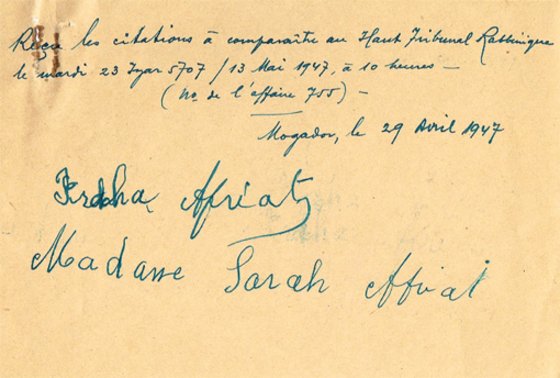 Reçu les citations à comparaître au Haut Tribunal Rabbinique
le mardi 23 Iyar 5707 / 13 Mai 1947, à 10 heures —
(No de l'affaire 755) —
Mogador, le 29 Avril 1947
Afriat
Madame Sarah Affriat